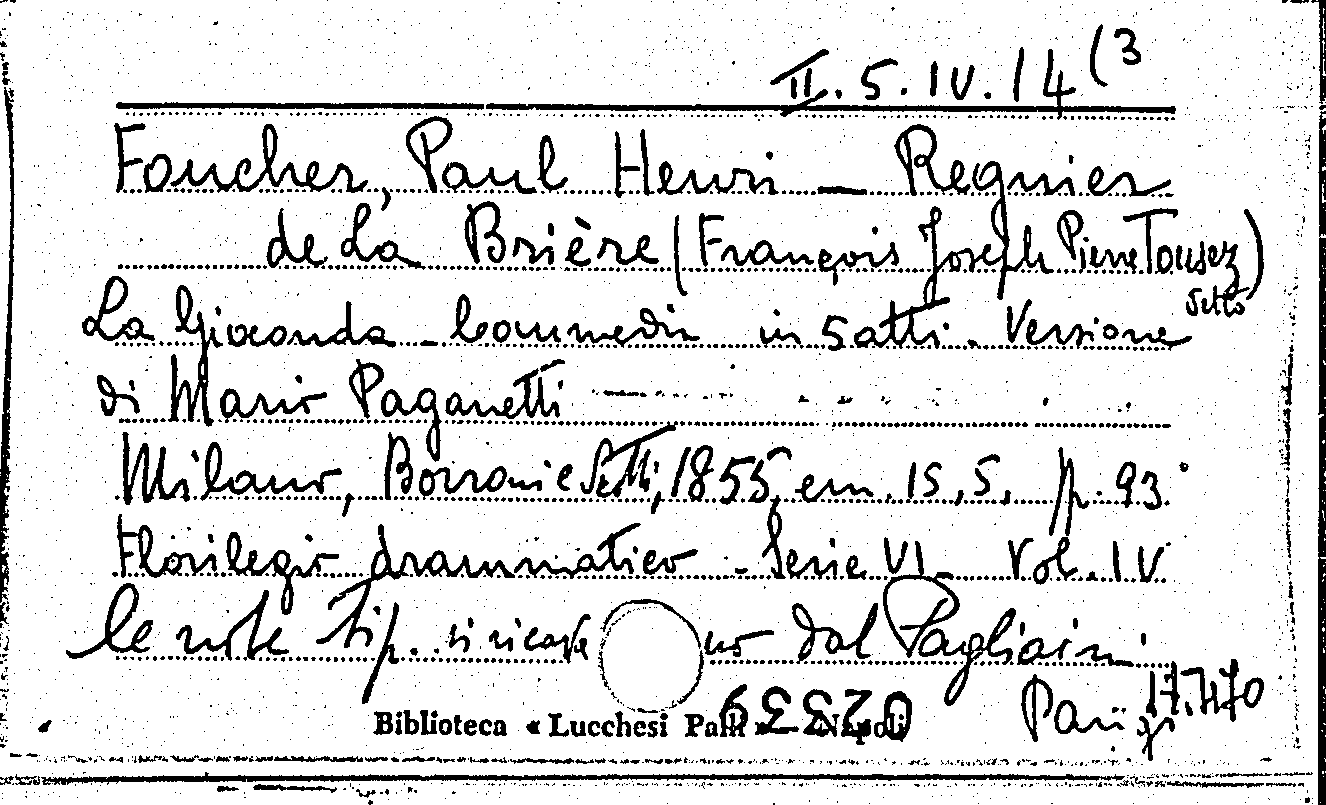 II. 5. IV. 14 (3
Foucher, Paul Henri — Regnier
de La Brière (François Joseph Pierre Tousez)
detto
La Gioconda - Commedia in 5 atti. Versione
di Mario Paganetti
Milano, Borroni e Scotti, 1855, cm. 15,5, p. 93
Florilegio drammatico - Serie VI - Vol. IV
le note tip. si rica no dal Pagliaini
17.470
Biblioteca « Lucchesi Palli » - Napoli
02339